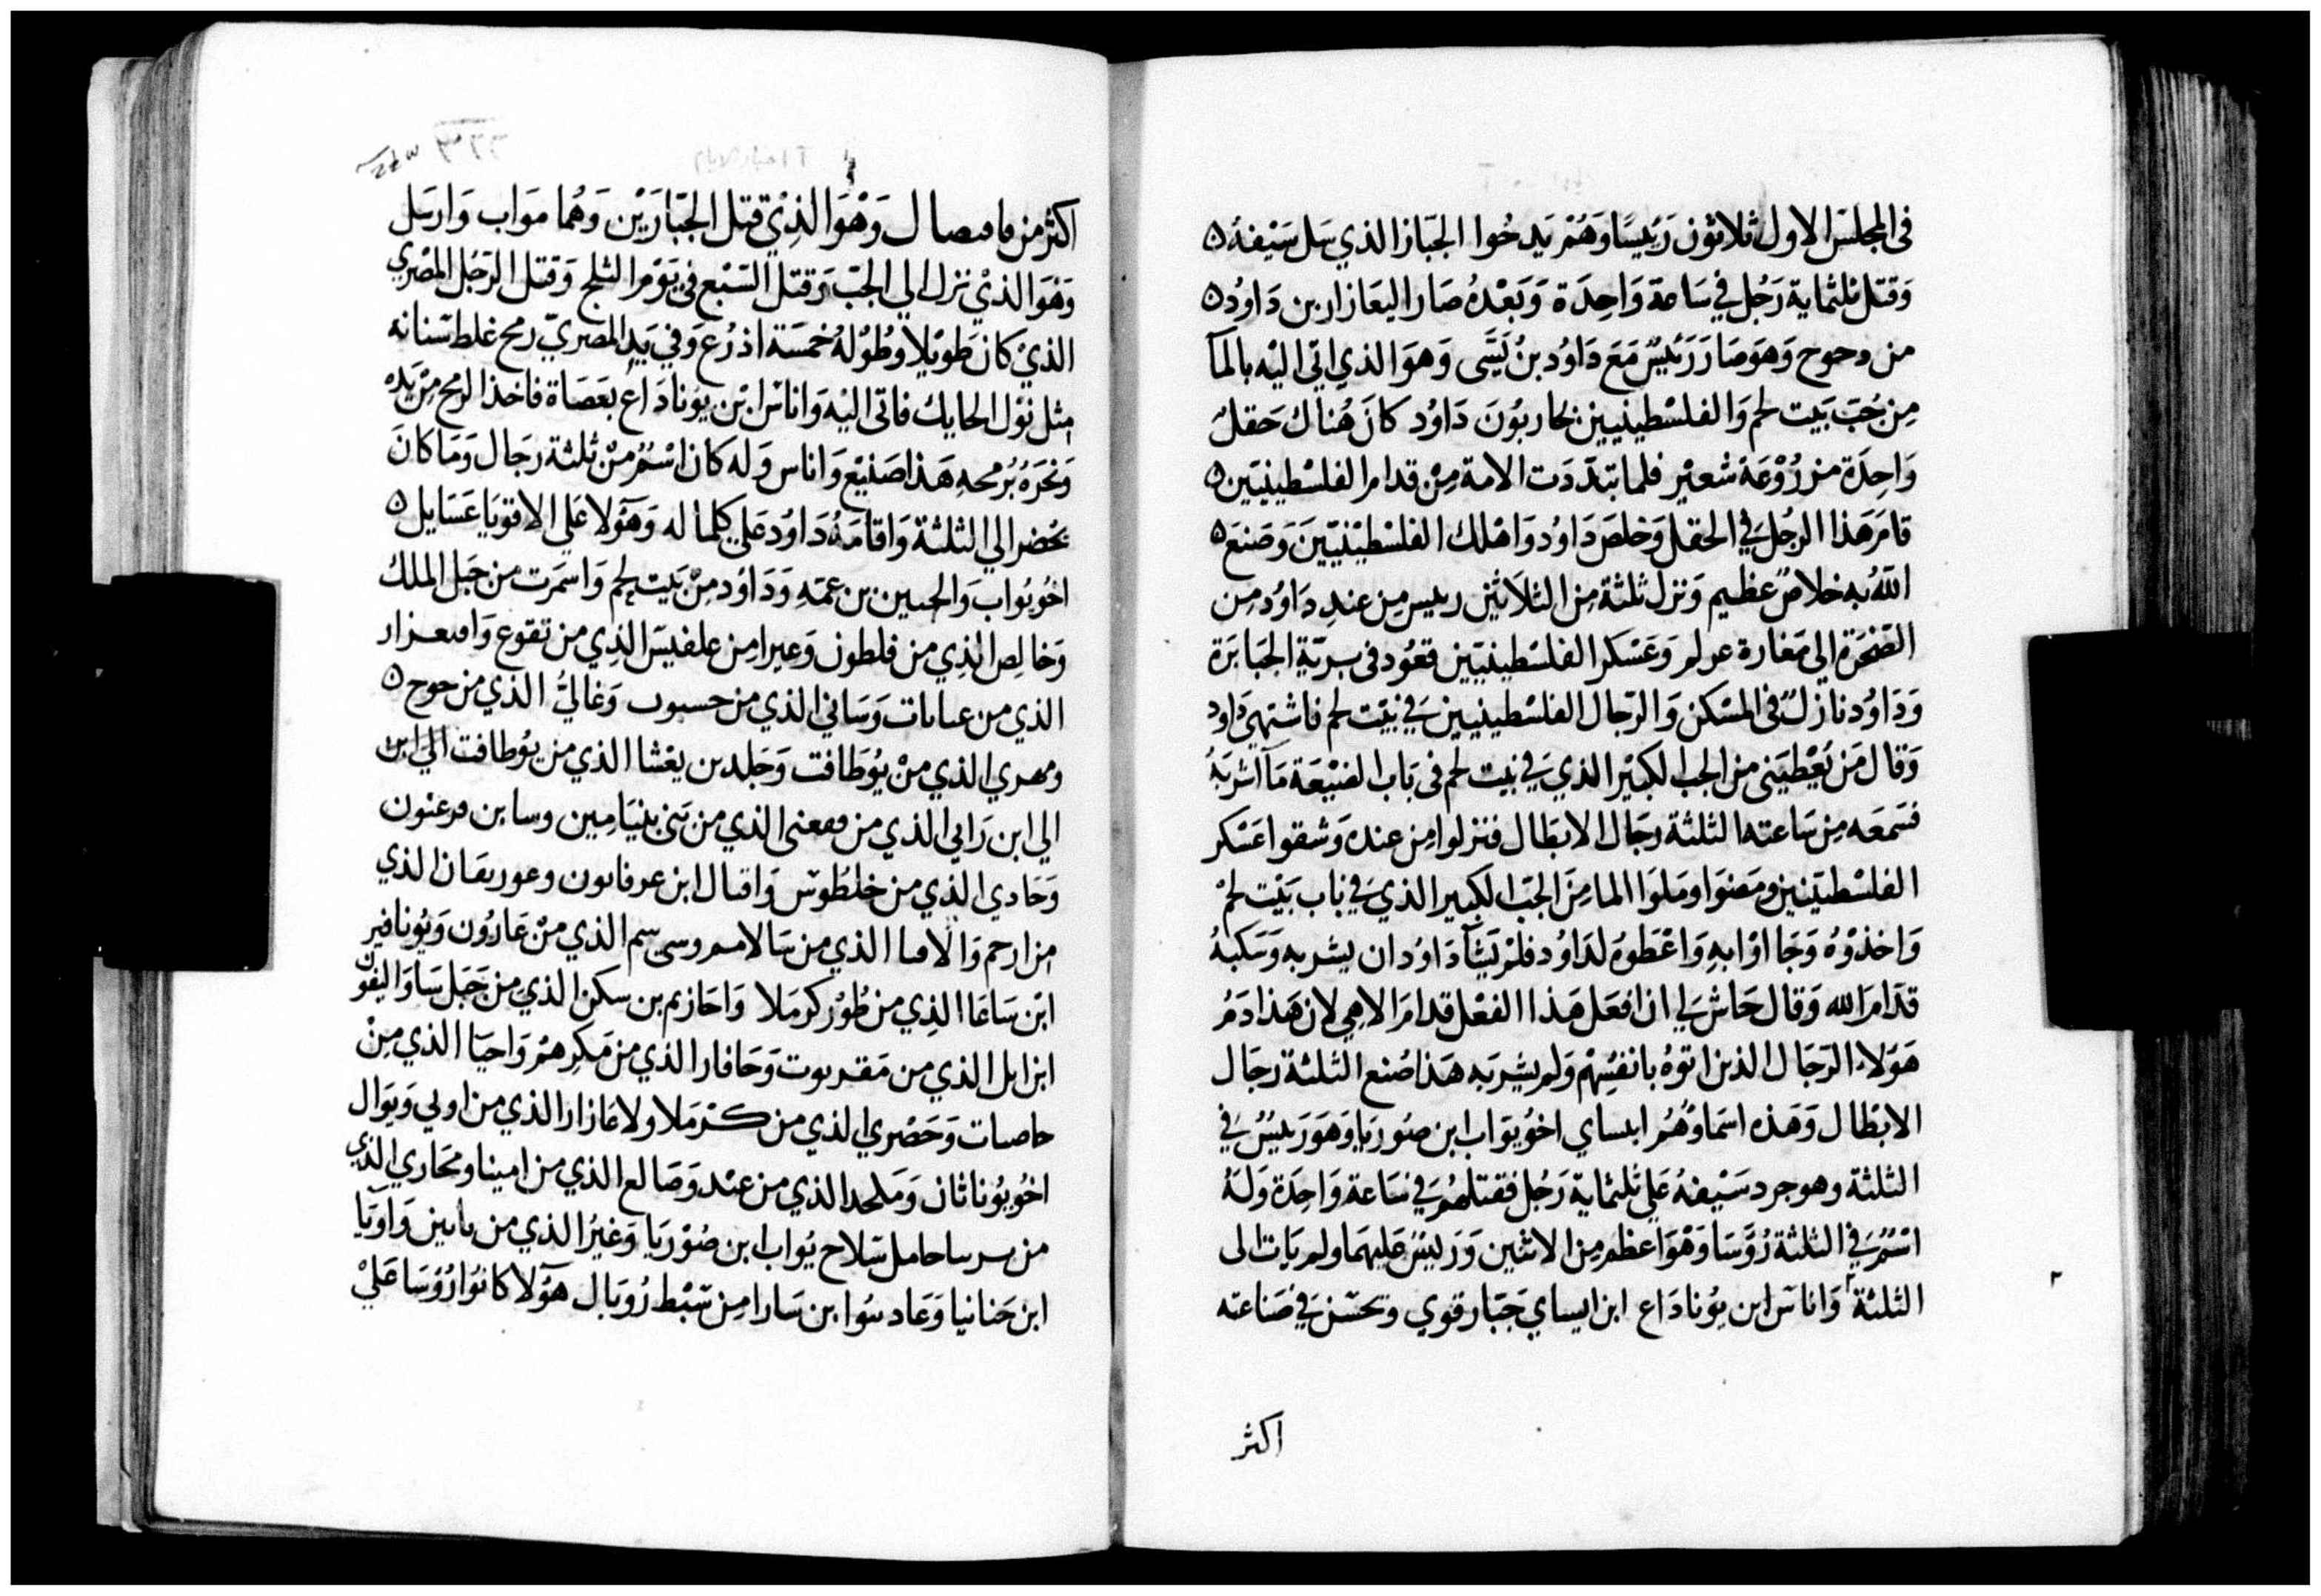 في المجلس الاول ثلاثون رئيسًا وهم يدخوا الجبازا الذي سل سيفه ۵
وقتل ثلثماية رجل في ساعة واحدة وبعده صار اليعازار بن داود ۵
من دحوح وهو صار رئيس مع داود بن يسى وهو الذي اتى اليه بالمآ
من جب بيت لحم والفلسطينيين يحاربون داود كان هناك حقل
واحدة من زروعة شعير فلما تبددت الامة من قدام الفلسطينيين ۵
قام هذا الرجل في الحقل وخلص داود واهلك الفلسطينيين وصنع ۵
الله به خلاص عظيم ونزل ثلثة من الثلاثين رييس من عند داود من
الصخرة الي مغارة عدلم وعسكر الفلسطينيين قعود في برية الجبابرة
وداود نازل في المسكن والرجال الفلسطينيين في بيت لحم فاشتهي داود
وقال من يعطيني من الجب الكبير الذي في بيت لحم في باب الضيعة مآ اشربه
فسمعه من ساعته الثلثة رجال الابطال فنزلوا من عنده وشقوا عسكر
الفلسطينين ومضوا وملوا الما من الجب الكبير الذي في باب بيت لحم
واخذوه وجااوا به واعطوه لداود فلم يشآ داود ان يشربه وسكبه
قدام الله وقال حاش لي ان افعل هذا الفعل قدام الاهي لان هذا دم
هولاء الرجال الذين اتوه بانفسهم ولم يشربه هذا صنع الثلثة رجال
الابطال وهذه اسماوهم ابساي اخو يواب ابن صوريا وهو رييس في
الثلثة وهو جرد سيفه علي ثلثماية رجل فقتلهم في ساعة واحدة وله
اسم في الثلثة رؤسا وهو اعظم من الاثنين ورييس عليهما ولم يات الى
الثلثة واناس ابن يوناداع ابن ايساي جبار قوي وتحسن في صناعته
اكثر
اكثر من وهو الذي قتل الجبارين وهما مواب وارسل
وهو الذي نزل الي الجب وقتل السبع في يوم الثلج وقتل الرجل المصري
الذي كان طويلا وطوله خمسة اذرع وفي يد المصري رمح غلط سنانه
مثل نول الحايك فاتى اليه واناس ابن يوناداع بعصاة فاخذ الرمح من يده
ونحره برمحه هذا صنيع واناس وله كان اسم من ثلثة رجال وما كان
يحضر الي الثلثة واقامه داود علي كلما له وهولا علي الاقويا عسايل ۵
اخو يواب والحسين بن عمه وداود من بيت لحم واسمرت من جبل الملك
وخالص الذي من فلطون وعيرا من علفيس الذي من تقوع وامعزار
الذي من عباثات وساني الذي من حسوب وغالي الذي من حوح ۵
ومهري الذي من يوطافت وجلد بن يعشا الذي من يوطافت الي ابن
الي ابن رابي الذي من الذي من بني بنيامين وسابن فرعنون
وحادي الذي من خلطوس واقبال ابن عرفاتون الذي
من ارحم الذي من سالامم الذي من عارون ويونافير
ابن ساعا الذي من طور كرملا واحازيم بن سكن الذي من جبل ساو اليفون
ابن ابل الذي من وحافار الذي من مكرهم واحيا الذي من
حاصات وحصري الذي من كرملا ولاعازار الذي من اولي ويوال
اخو يوناثان وملحد الذي من عند وصالع الذي من امينا ومحاري الذي
من حامل سلاح يواب ابن صوريا وغير الذي من ياتين واوريا
ابن حنانيا وعاد ابن سارا من سبط روبال هولا كانوا رؤسا علي